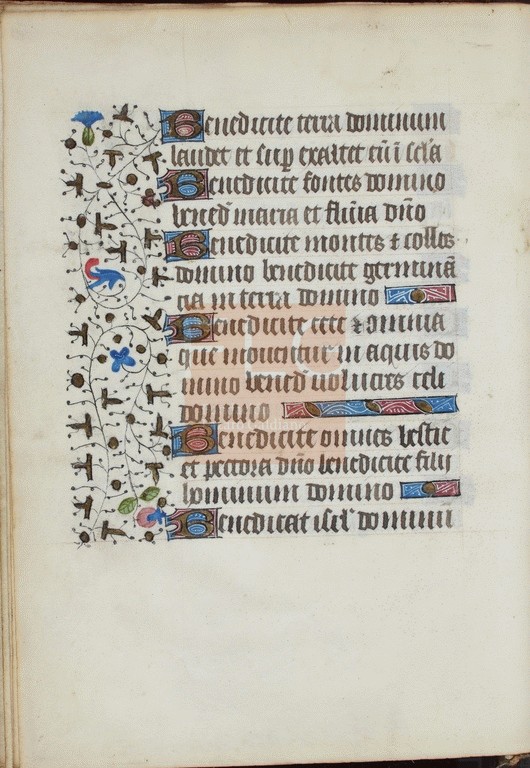 Benedicite terra dominum
laudet et sup exaltet eū ī sc̄la
Benedicite fontes domino
bened maria et flūīa dn̄o
Benedicite montes & colles
domino benedicite germinā
cia in terra domino
Benedicite cete & omnia
que mouentur in aquis do
mino bened uolucres celi
domino
Benedicite omnes bestie
et peccora dn̄o benedicite filij
hominum domino
Benedicat isrl̄ dominū